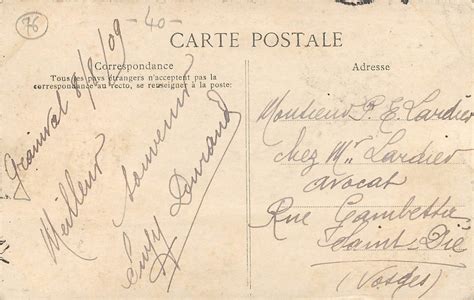 76
-40-
CARTE POSTALE
Correspondance
Tous les pays étrangers n'acceptent pas la
correspondance au recto, se renseigner à la poste:
Adresse
Grainval 8/8/09
Meilleur
souvenir
Durand
Monsieur P. E. Lardier
chez Mr Lardier
avocat
Rue Gambetta
Saint-Dié
(Vosges)